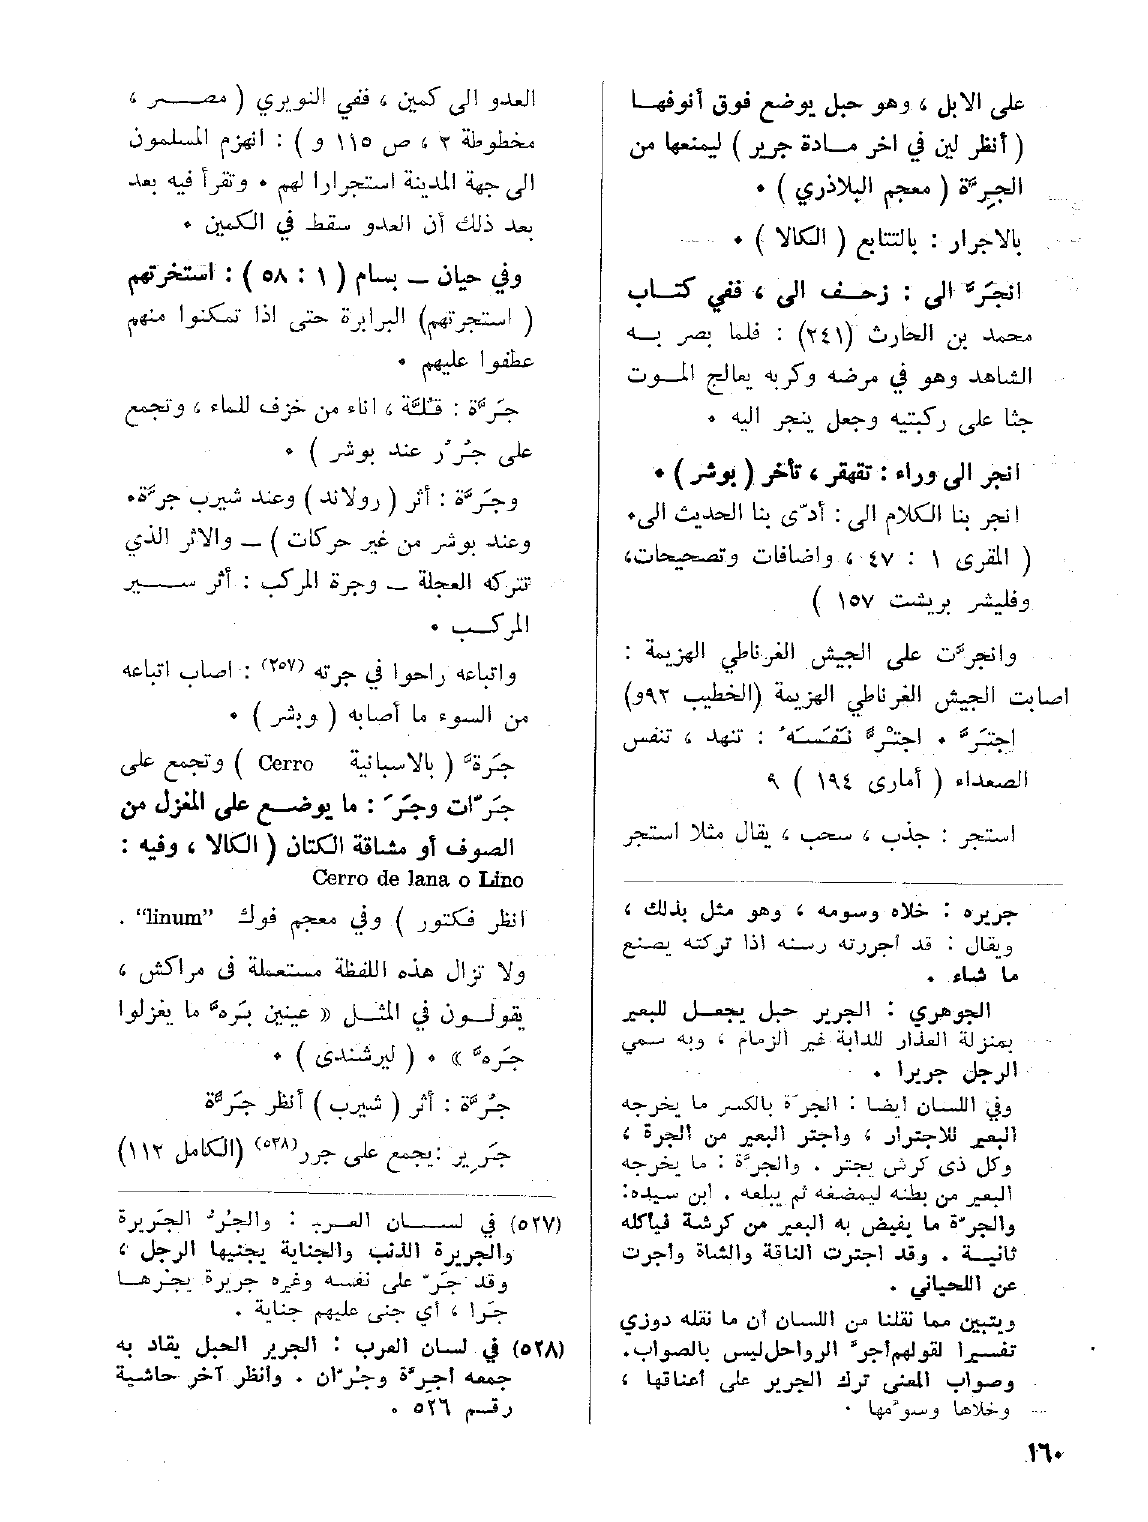 على الابل ، وهو حبل يوضع فوق أنوفها
( أنظر لين في اخر مادة جرير ) ليمنعها من
الجِرَّة ( معجم البلاذري ) .
بالاجرار : بالتتابع ( الكالا ) .
انجَرَّ الى : زحف الى ، ففي كتاب
محمد بن الحارث (٢٤١) : فلما بصر به
الشاهد وهو في مرضه وكربه يعالج الموت
جثا على ركبتيه وجعل ينجر اليه .
انجر الى وراء : تقهقر ، تأخر ( بوشر ) .
انجر بنا الكلام الى : أدّى بنا الحديث الى.
( المقرى ١ : ٤٧ ، واضافات وتصحيحات،
وفليشر بريشت ١٥٧ )
وانجرَّت على الجيش الغرناطي الهزيمة :
اصابت الجيش الغرناطي الهزيمة (الخطيب ٩٢و)
اجتَرَّ . اجترَّ نَفَسَهُ : تنهد ، تنفس
الصعداء ( أمارى ١٩٤ ) ٩
استجر : جذب ، سحب ، يقال مثلا استجر
جريره : خلاه وسومه ، وهو مثل بذلك ،
ويقال : قد اجررته رسنه اذا تركته يصنع
ما شاء .
الجوهري : الجرير حبل يجعل للبعير
بمنزلة العذار للدابة غير الزمام ، وبه سمي
الرجل جريرا .
وفي اللسان ايضا : الجرّة بالكسر ما يخرجه
البعير للاجترار ، واجتر البعير من الجرة ،
وكل ذى كرش يجتر . والجرَّة : ما يخرجه
البعير من بطنه ليمضغه ثم يبلعه . ابن سيده:
والجرّة ما يفيض به البعير من كرشة فيأكله
ثانية . وقد اجترت الناقة والشاة واجرت
عن اللحياني .
ويتبين مما نقلنا من اللسان أن ما نقله دوزي
تفسيرا لقولهم أجرَّ الرواحل ليس بالصواب.
وصواب المعنى ترك الجرير على أعناقها ،
وخلاها وسوّمها .
العدو الى كمين ، ففي النويري ( مصر ،
مخطوطة ٢ ، ص ١١٥ و ) : انهزم المسلمون
الى جهة المدينة استجرارا لهم . وتقرأ فيه بعد
بعد ذلك أن العدو سقط في الكمين .
وفي حيان ـ بسام ( ١ : ٥٨ ) : استخرتهم
( استجرتهم) البرابرة حتى اذا تمكنوا منهم
عطفوا عليهم .
جَرَّة : قلَّة ، اناء من خزف للماء ، وتجمع
على جُرُر عند بوشر ) .
وجَرَّة : أثر ( رولاند ) وعند شيرب جرَّة.
وعند بوشر من غير حركات ) ـ والاثر الذي
تتركه العجلة ـ وجرة المركب : أثر سير
المركب .
واتباعه راحوا في جرته (٢٥٧) : اصاب اتباعه
من السوء ما أصابه ( وبشر ) .
جَرة ( بالاسبانية Cerro ) وتجمع على
جَرّات وجَرَ : ما يوضع على المغزل من
الصوف أو مشاقة الكتان ( الكالا ، وفيه :
Cerro de lana o Lino
انظر فكتور ) وفي معجم فوك “linum” .
ولا تزال هذه اللفظة مستعملة فى مراكش ،
يقولون في المثل « عينين بَره ما يغزلوا
جَره » . ( ليرشندى ) .
جُرَّة : أثر ( شيرب ) أنظر جَرَّة
جَرِير : يجمع على جرر(٥٢٨) (الكامل ١١٢)
(٥٢٧) في لسان العرب : والجُرُ الجَريرة
والجريرة الذنب والجناية يجنيها الرجل ،
وقد جَرّ على نفسه وغيره جريرة يجرها
جَرا ، أي جنى عليهم جناية .
(٥٢٨) في لسان العرب : الجرير الحبل يقاد به
جمعه أجِرَّة وجُرّان . وانظر آخر حاشية
رقم ٥٢٦ .
١٦٠